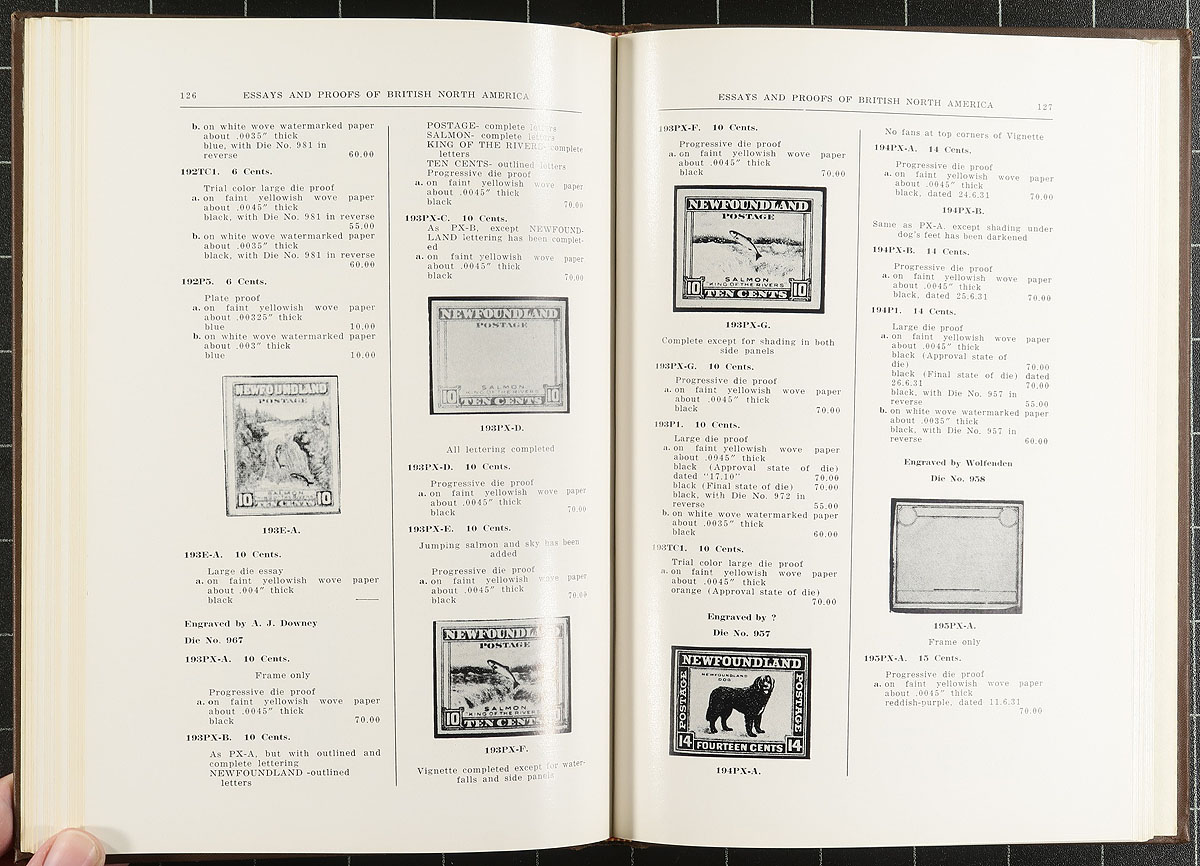 126 ESSAYS AND PROOFS OF BRITISH NORTH AMERICA
b. on white wove watermarked paper
about .0035" thick
blue, with Die No. 981 in
reverse 60.00
192TC1. 6 Cents.
Trial color large die proof
a. on faint yellowish wove paper
about .0045" thick
black, with Die No. 981 in reverse
55.00
b. on white wove watermarked paper
about .0035" thick
black, with Die No. 981 in reverse
60.00
192P5. 6 Cents.
Plate proof
a. on faint yellowish wove paper
about .00325" thick
blue 10.00
b. on white wove watermarked paper
about .003" thick
blue 10.00
NEWFOUNDLAND
POSTAGE
10 TEN CENTS 10
193E-A.
193E-A. 10 Cents.
Large die essay
a. on faint yellowish wove paper
about .004" thick
black ——
Engraved by A. J. Downey
Die No. 967
193PX-A. 10 Cents.
Frame only
Progressive die proof
a. on faint yellowish wove paper
about .0045" thick
black 70.00
193PX-B. 10 Cents.
As PX-A, but with outlined and
complete lettering
NEWFOUNDLAND -outlined
letters
POSTAGE- complete letters
SALMON- complete letters
KING OF THE RIVERS- complete
letters
TEN CENTS- outlined letters
Progressive die proof
a. on faint yellowish wove paper
about .0045" thick
black 70.00
193PX-C. 10 Cents.
As PX-B, except NEWFOUND-
LAND lettering has been complet-
ed
a. on faint yellowish wove paper
about .0045" thick
black 70.00
NEWFOUNDLAND
POSTAGE
SALMON
KING OF THE RIVERS
10 TEN CENTS 10
193PX-D.
All lettering completed
193PX-D. 10 Cents.
Progressive die proof
a. on faint yellowish wove paper
about .0045" thick
black 70.00
193PX-E. 10 Cents.
Jumping salmon and sky has been
added
Progressive die proof
a. on faint yellowish wove paper
about .0045" thick
black 70.00
NEWFOUNDLAND
POSTAGE
SALMON
KING OF THE RIVERS
10 TEN CENTS 10
193PX-F.
Vignette completed except for water-
falls and side panels
ESSAYS AND PROOFS OF BRITISH NORTH AMERICA 127
193PX-F. 10 Cents.
Progressive die proof
a. on faint yellowish wove paper
about .0045" thick
black 70.00
NEWFOUNDLAND
POSTAGE
SALMON
KING OF THE RIVERS
10 TEN CENTS 10
193PX-G.
Complete except for shading in both
side panels
193PX-G. 10 Cents.
Progressive die proof
a. on faint yellowish wove paper
about .0045" thick
black 70.00
193P1. 10 Cents.
Large die proof
a. on faint yellowish wove paper
about .0045" thick
black (Approval state of die)
dated "17.10" 70.00
black (Final state of die) 70.00
black, with Die No. 972 in
reverse 55.00
b. on white wove watermarked paper
about .0035" thick
black 60.00
193TC1. 10 Cents.
Trial color large die proof
a. on faint yellowish wove paper
about .0045" thick
orange (Approval state of die)
70.00
Engraved by ?
Die No. 957
NEWFOUNDLAND
NEWFOUNDLAND
DOG
POSTAGE POSTAGE
14 FOURTEEN CENTS 14
194PX-A.
No fans at top corners of Vignette
194PX-A. 14 Cents.
Progressive die proof
a. on faint yellowish wove paper
about .0045" thick
black, dated 24.6.31 70.00
194PX-B.
Same as PX-A, except shading under
dog's feet has been darkened
194PX-B. 14 Cents.
Progressive die proof
a. on faint yellowish wove paper
about .0045" thick
black, dated 25.6.31 70.00
194P1. 14 Cents.
Large die proof
a. on faint yellowish wove paper
about .0045" thick
black (Approval state of
die) 70.00
black (Final state of die) dated
26.6.31 70.00
black, with Die No. 957 in
reverse 55.00
b. on white wove watermarked paper
about .0035" thick
black, with Die No. 957 in
reverse 60.00
Engraved by Wolfenden
Die No. 958
195PX-A.
Frame only
195PX-A. 15 Cents.
Progressive die proof
a. on faint yellowish wove paper
about .0045" thick
reddish-purple, dated 11.6.31
70.00